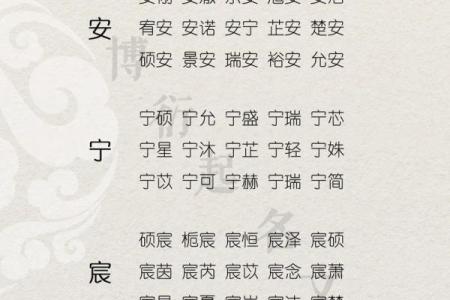 安 宥安 安诺 安宁 芷安 楚安
硕安 景安 瑞安 裕安 允安
宁硕 宁允 宁盛 宁瑞 宁芯
宁 宁星 宁沐 宁芷 宁轻 宁姝
宁苡 宁可 宁赫 宁瑞 宁简
硕宸 栀宸 宸恒 宸泽 宸硕
宸 宸茵 宸芮 宸苡 宸念 宸萧
博衍起名